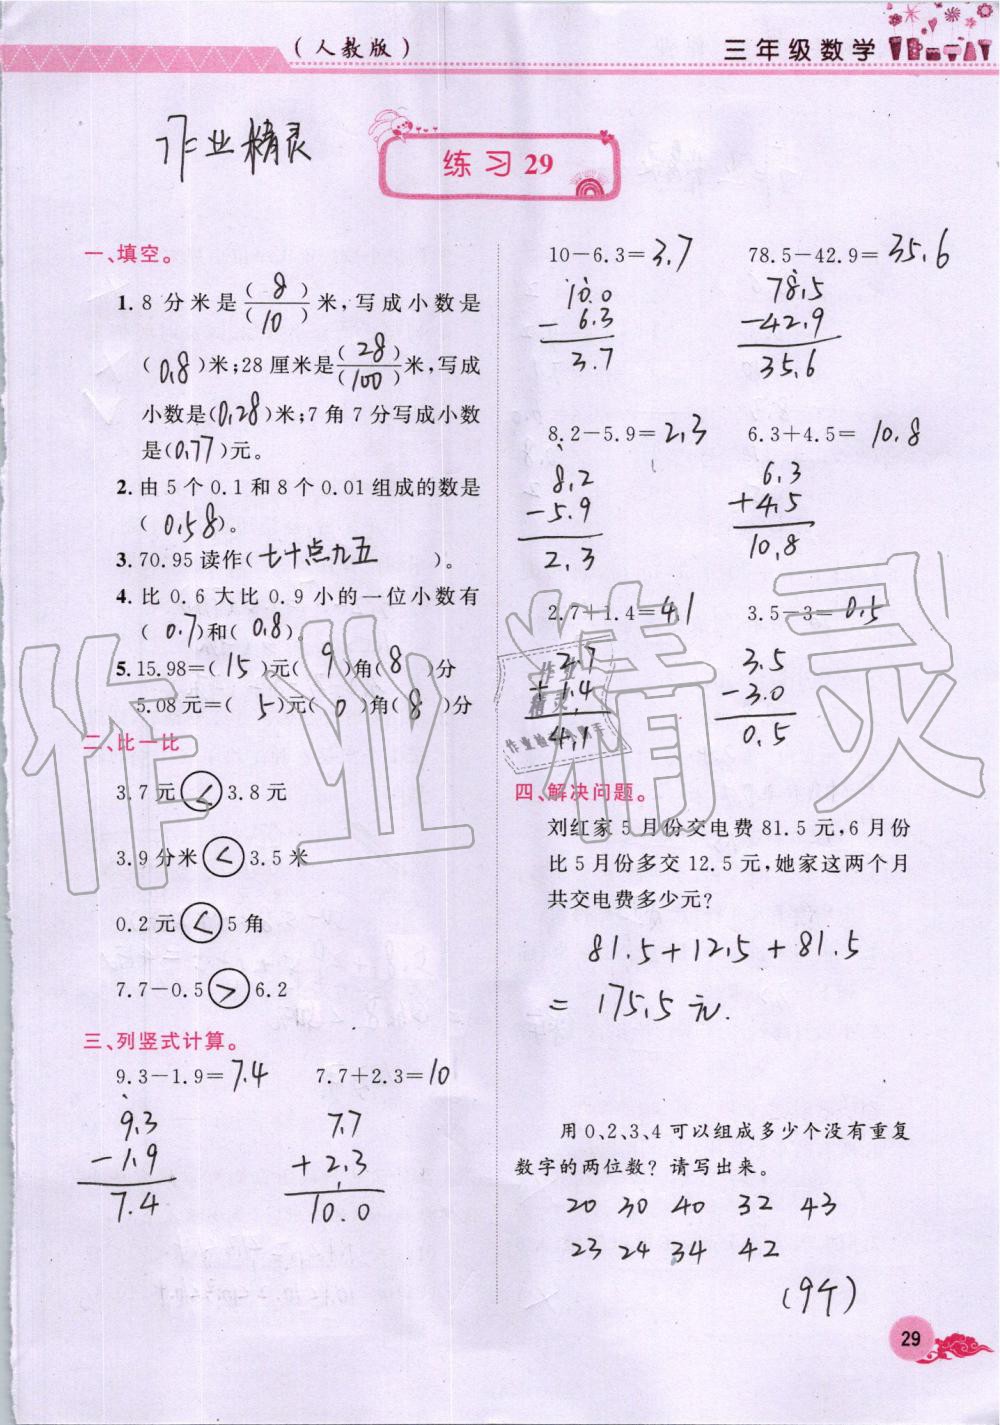 （人教版）
三年级数学
作业精灵
练习29
一、填空。
1. 8分米是(8)/(10)米，写成小数是
(0.8)米；28厘米是(28)/(100)米，写成
小数是(0.28)米；7角7分写成小数
是(0.77)元。
2. 由5个0.1和8个0.01组成的数是
(0.58)。
3. 70.95读作(七十点九五)。
4. 比0.6大比0.9小的一位小数有
(0.7)和(0.8)。
5. 15.98=(15)元(9)角(8)分
5.08元=(5)元(0)角(8)分
二、比一比
3.7元<3.8元
3.9分米<3.5米
0.2元<5角
7.7-0.5>6.2
三、列竖式计算。
9.3-1.9=7.4 7.7+2.3=10
9.3 7.7
-1.9 +2.3
7.4 10.0
10-6.3=3.7 78.5-42.9=35.6
10.0 78.5
-6.3 -42.9
3.7 35.6
8.2-5.9=2.3 6.3+4.5=10.8
8.2 6.3
-5.9 +4.5
2.3 10.8
2.7+1.4=4.1 3.5-3=0.5
2.7 3.5
+1.4 -3.0
4.1 0.5
四、解决问题。
刘红家5月份交电费81.5元，6月份
比5月份多交12.5元，她家这两个月
共交电费多少元？
81.5+12.5+81.5
=175.5元.
用0、2、3、4可以组成多少个没有重复
数字的两位数？请写出来。
20 30 40 32 43
23 24 34 42
(9个)
29
作业精灵
作业
精灵